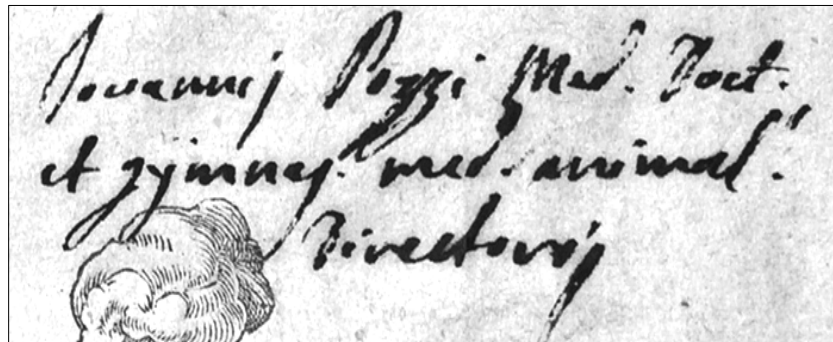 Joannis Pozzi Med. Doct.
et gymnas. med. animal.
Directoris